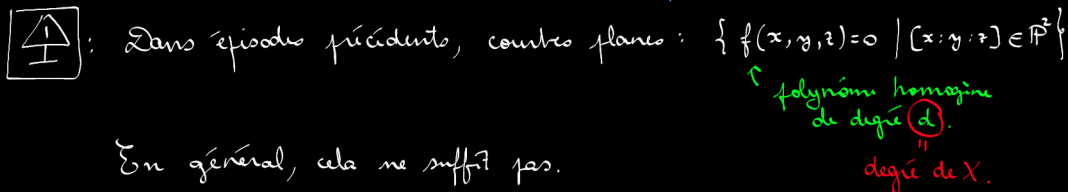 : Dans épisodes précédents, courbes planes : { f(x,y,z)=0 | [x:y:z] ∈ ℙ² }
polynôme homogène
de degré d.
"
En général, cela ne suffit pas.
degré de X.